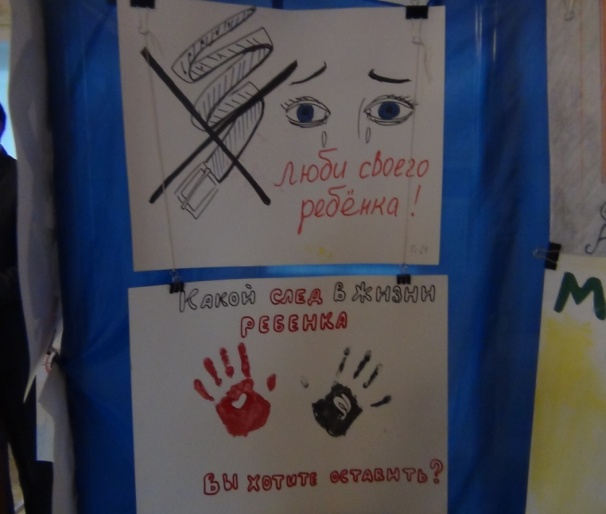 люби своего
ребёнка!
КАКОЙ СЛЕД В ЖИЗНИ
РЕБЕНКА
ВЫ ХОТИТЕ ОСТАВИТЬ?
М